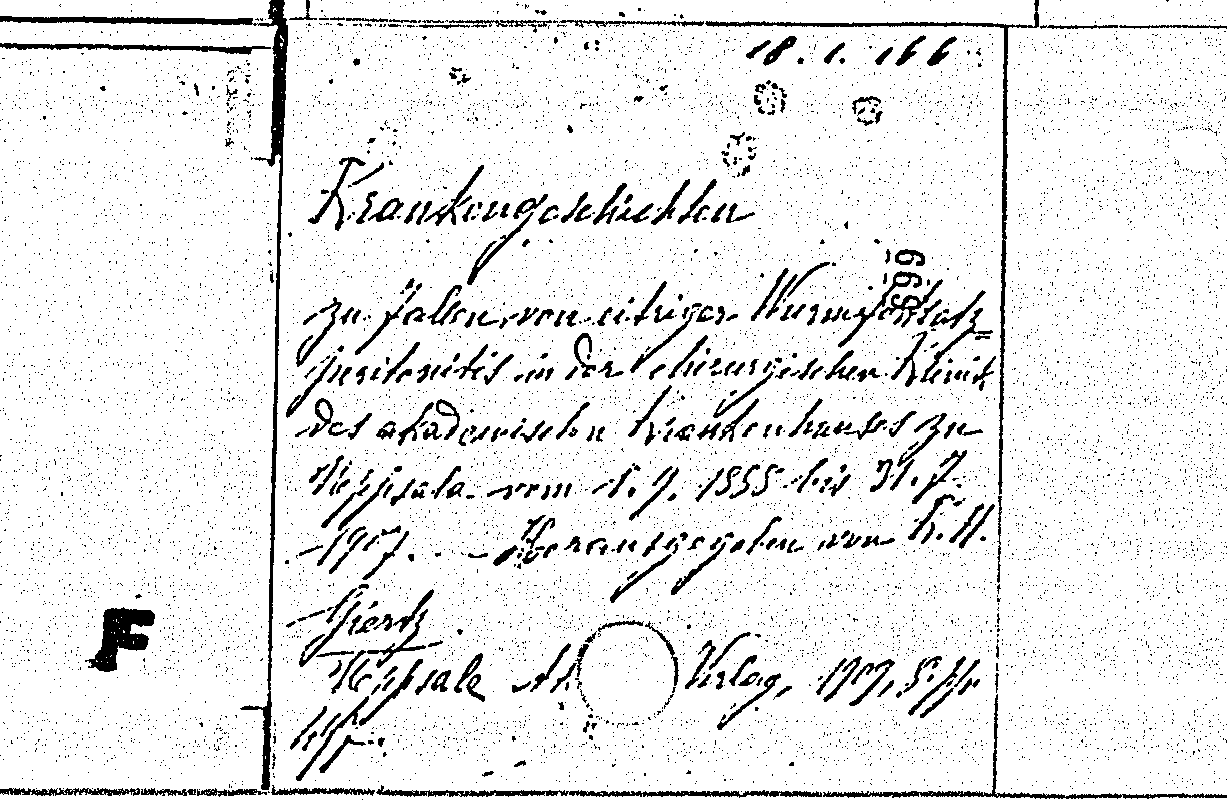 18. 1. 166
Krankengeschichten
699
zu Fällen von eitriger Wurmfortsatz=
peritonitis in der chirurgischen Klinik
des akademischen Krankenhauses zu
Uppsala vom 1. 9. 1888 bis 31. 7.
1907. - Herausgegeben von K. H.
Giertz.
Uppsala Verlag, 1909,
F